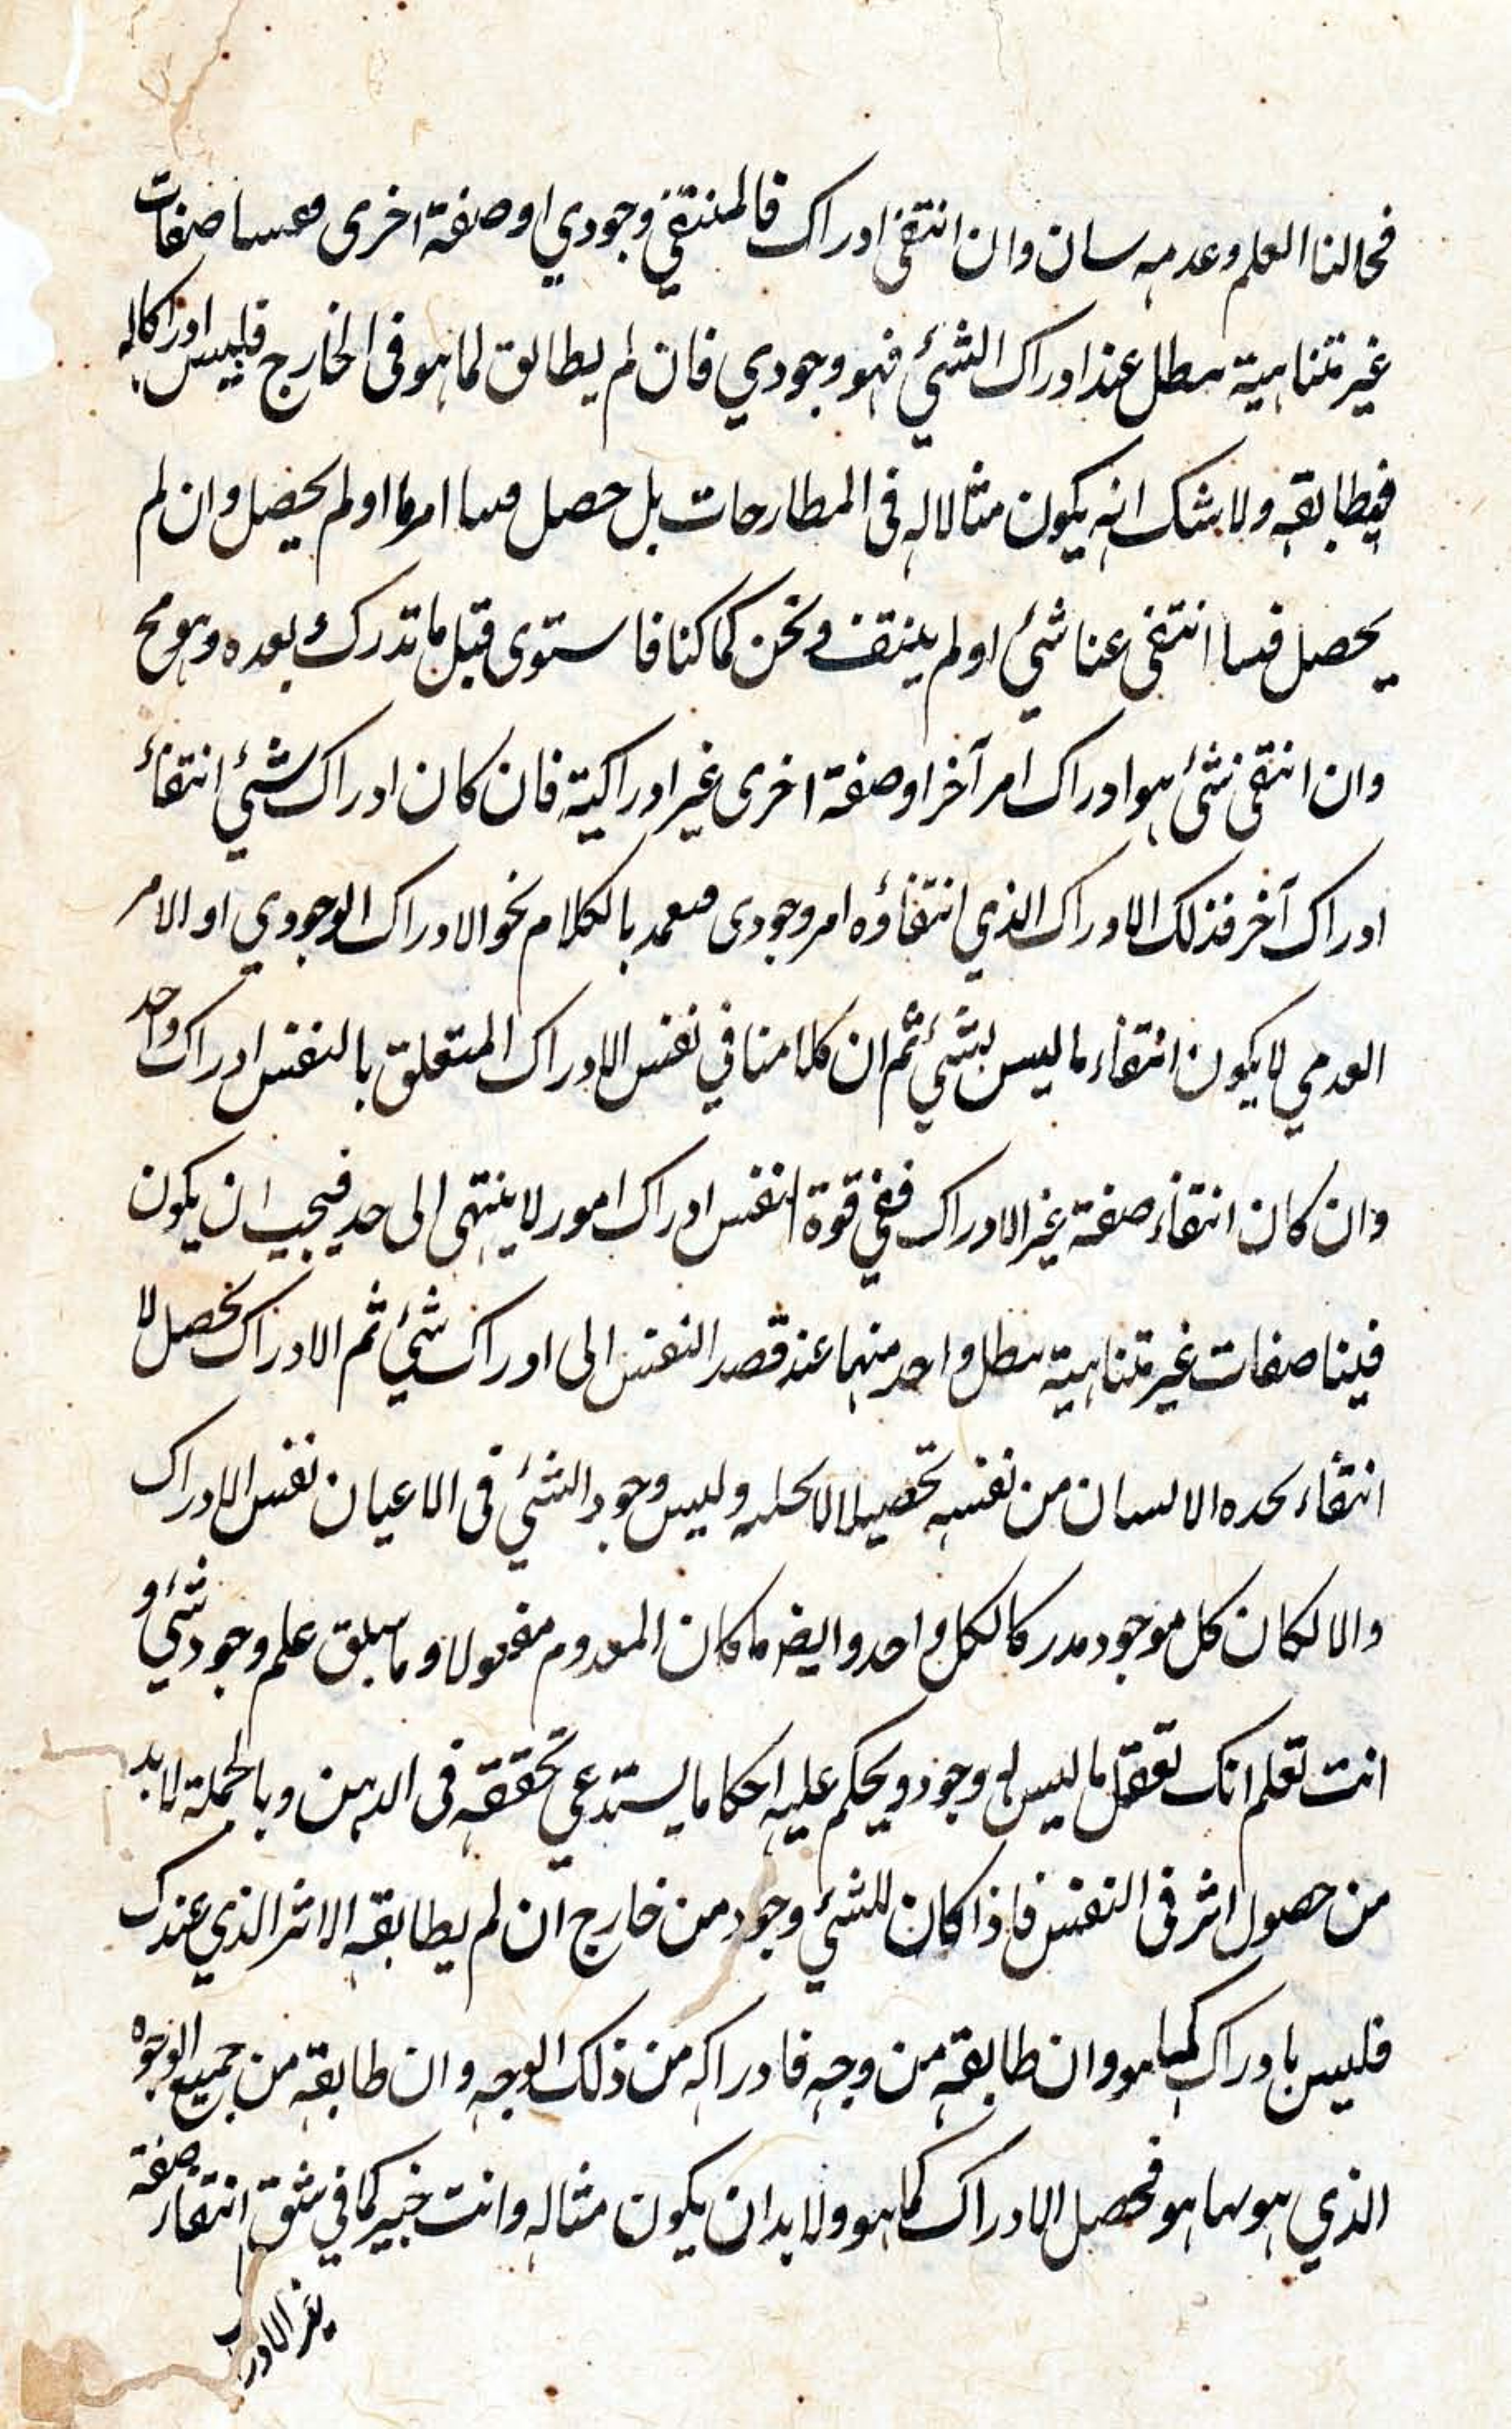 فحالنا العلم وعدمه سان وان انتفى ادراك فالمنتفي وجودي او صفة اخرى صفات
غير متناهية سطل عند ادراك الشئ فهو وجودي فان لم يطابق لما هو فى الخارج فليس ادراكا له
فيطابقه ولا شك انه يكون مثالا له فى المطارحات بل حصل فينا امر ما او لم يحصل وان لم
يحصل فينا انتفى عنا شئ او لم ينتف ونحن كما كنا فاستوى قبل ما ندرك وبعده وهو مح
وان انتفى شئ هو ادراك امر آخر او صفة اخرى غير ادراكية فان كان ادراك شئ انتفاء
ادراك آخر فذلك الادراك الذي انتفاؤه امر وجودى بالكلام نحو الادراك الوجودي او الامر
العدمي لا يكون انتفاء ما ليس بشئ ثم ان كلامنا في نفس الادراك المتعلق بالنفس ادراك واحد
وان كان انتفاء صفة غير الادراك ففي قوة النفس ادراك امور لا ينتهى الى حد فيجب ان يكون
فينا صفات غير متناهية سطل واحد منهما عند قصد النفس الى ادراك شئ ثم الادراك تحصل لا
انتفاء يحده الانسان من نفسه تحصيلا لا وليس وجود الشئ فى الاعيان نفس الادراك
والا لكان كل موجود مدركا لكل واحد وايضا ما كان المعدوم مفعولا وما سبق علم وجود شئ و
انت تعلم انك تعقل ما ليس له وجود ويحكم عليه احكاما يستدعي تحققه فى الذهن وبالجملة لا بد
من حصول اثر فى النفس فاذا كان للشئ وجود من خارج ان لم يطابقه الاثر الذي عندك
فليس بادراك كما هو وان طابقه من وجه فادراكه من ذلك الوجه وان طابقه من جميع الوجوه
الذي هو بها هو فحصل الادراك كما هو ولا بد ان يكون مثاله وانت خبير كما في شق انتفاء صفة
غير الادراك